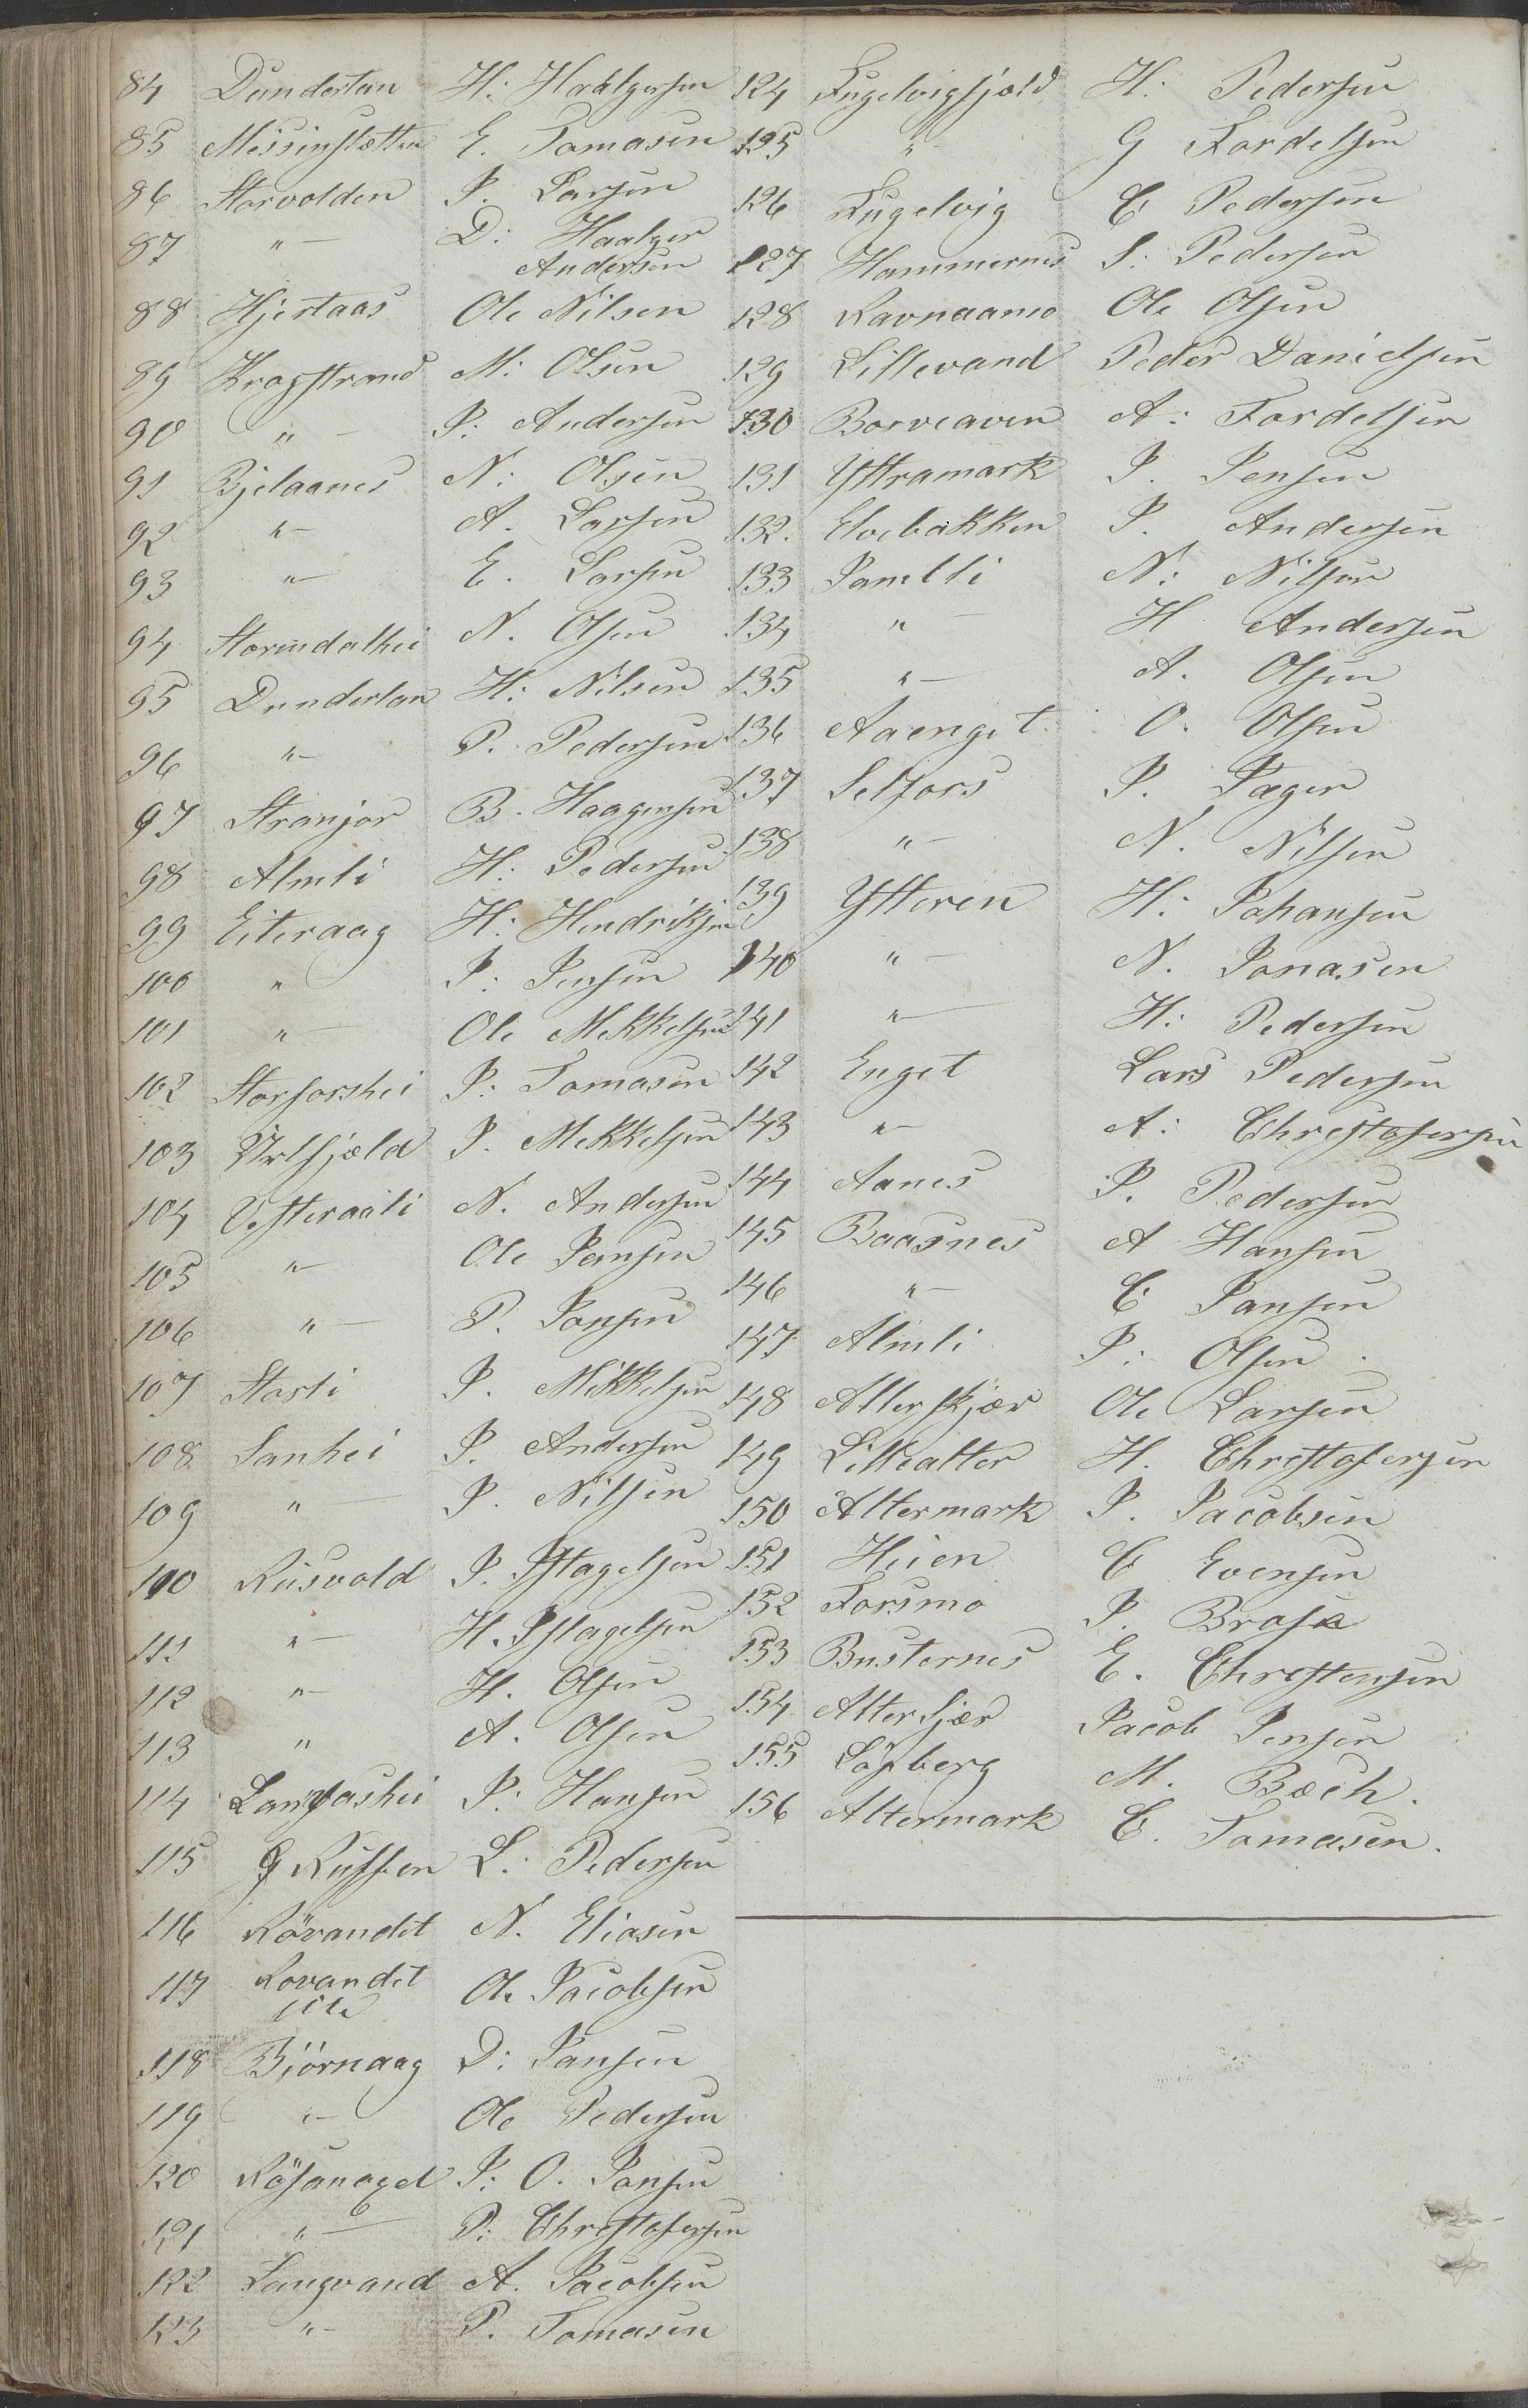 84 Dunderlan H: Haalgersen
85 Messingslætten E. Tomasen
86 Storvolden P. Larsen
87 " — D: Haalger
Andersen
88 Hjertaas Ole Nilsen
89 Krogstrand M: Olsen
90 " — P: Andersen
91 Bjelaanes N: Olsen
92 " — A. Larsen
93 " — E. Larsen
94 Stormdalhei N. Olsen
95 Dunderlan H: Nilsen
96 " — P. Pedersen
97 Stranjor B. Haagensen
98 Almli H: Pedersen
99 Eiteraag H: Hendriksen
100 " P: Jensen
101 " — Ole Mekkelsen
102 Storforshei P: Tomasen
103 Urtfjæld P. Mekkelsen
104 Vesteraali N. Andersen
105 " — Ole Jansen
106 " — P. Jansen
107 Storli P. Mikkelsen
108 Sanhei P. Andersen
109 " — P. Nilsen
110 Rusvold P. Istagelsen
111 " — H. Istagelsen
112 " — H. Olsen
113 " A. Olsen
114 Langfashei P: Hansen
115 G Ruffen L: Pedersen
116 Rövandet N. Eliasen
117 Rovandet
lille Ole Jacobsen
118 Björnaag D: Jansen
119 " — Ole Pedersen
120 Rösanaget P: O. Jansen
121 " — P: Christofersen
122 Langvand A. Jacobsen
123 " — P. Tomasen
124 Fugelvigfjæld H: Pedersen
125 " G Fordelsen
126 Fugelvig C Pedersen
127 Hammernes S: Pedersen
128 Ravnaamo Ole Olsen
129 Lillevand Peder Danielsen
130 Borveaven A: Fordelsen
131 Yttramark P. Jensen
132. Elvebakken P. Andersen
133 Jamlli N: Nilsen
134 " — H Andersen
135 " — A. Olsen
136 Aaenget O. Olsen
137 Selfors P. Jæger
138 " — N. Nilsen
139 Ytteren H: Johansen
140 " — N. Jonasen
141 " — H: Pedersen
142 Enget Lars Pedersen
143 " — A: Christofersen
144 Aanes P. Pedersen
145 Baasnes A Hansen
146 " — C Jansen
147 Almli P: Olsen.
148 Alterskjær Ole Larsen
149 Lillealter H. Christofersen
150 Altermark P. Jacobsen
151 Heien C Evensen
152 Forsmo P. Brosa
153 Busternes E. Christensen
154 Altersjær Jacob Jensen
155 Löpberg M. Bæch.
156 Altermark C. Tomasen.